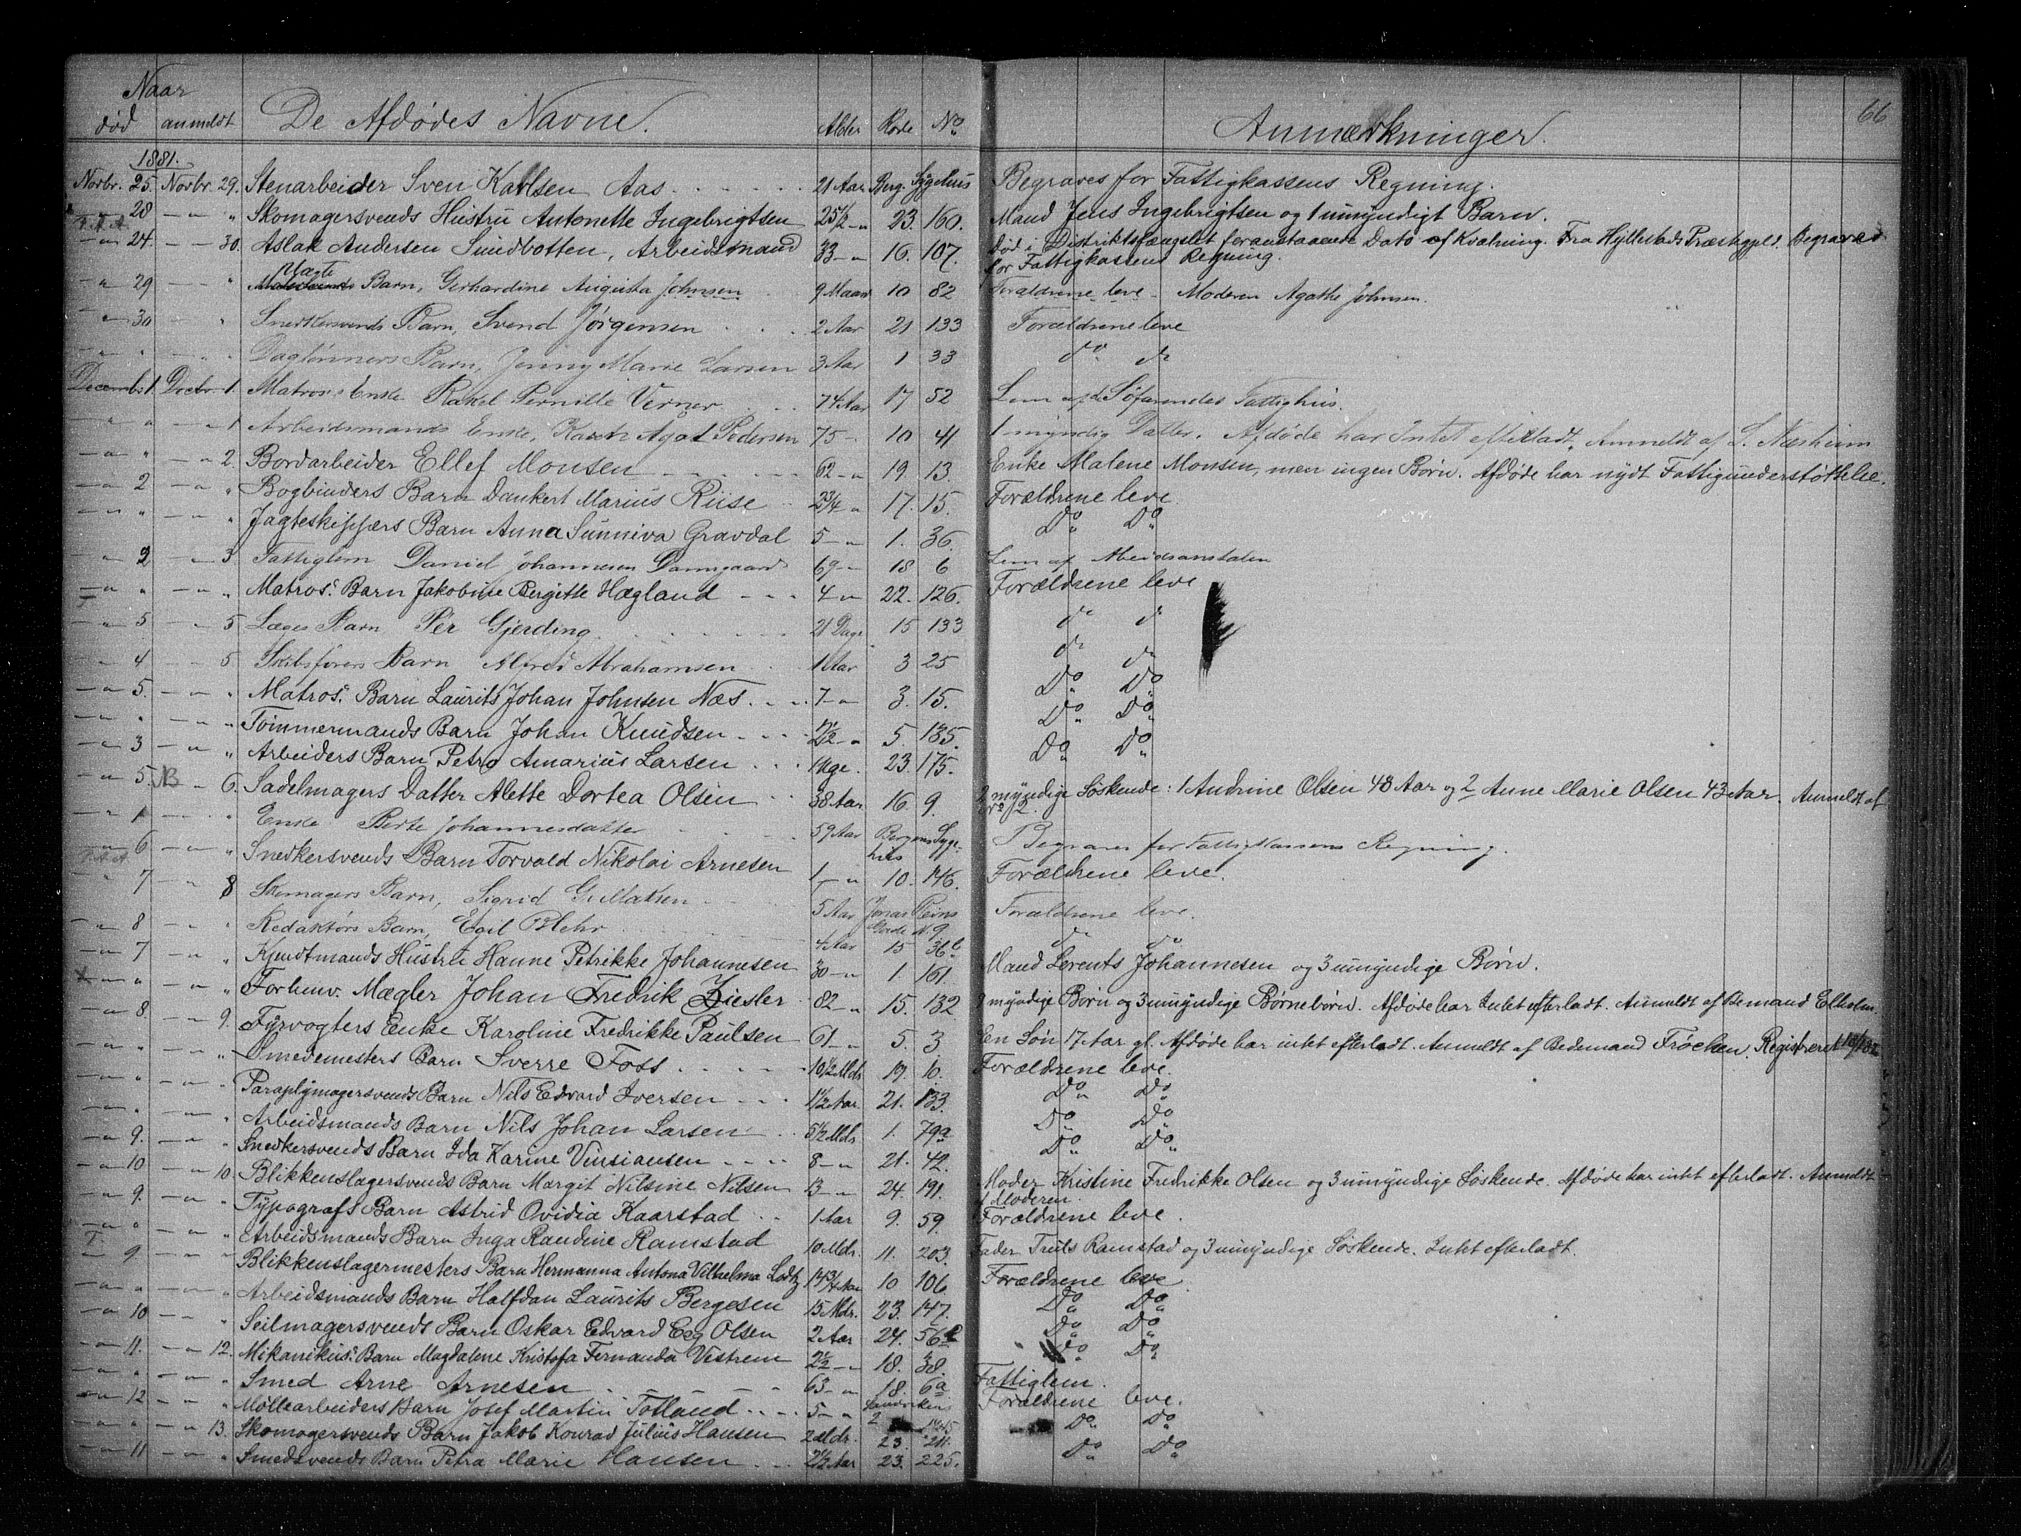 66
Naar
død anmeldt De Afdødes Navne. Alder Rode No Anmærkninger.
1881.
Novbr. 25. Novbr. 29. Stenarbeider Sven Karlsen Aas 21 Aar Berg. Sygehus Begraves for Fattigkassens Regning.
28 — " Skomagersvends Hustru Antonette Ingebrigtsen 25½ — " 23. 160. Mand Jens Ingebrigtsen og 1 umyndigt Barn.
— " 24. — 30. Aslak Andersen Sundbotten, Arbeidsmand 33 — " 16. 107. Død i Distriktsfængslet foranstaaende Dato af Kvælning. Fra Hyllestads Præstegjeld. Begraves
for Fattigkassens Regning.
— " 29 " Barn, Gerhardine Augusta Johnsen 9 Maan 10 82 Forældrene leve. Moderen Agathe Johnsen.
— " 30 " Snedkersvends Barn, Svend Jørgensen 2 Aar 21 133 Forældrene leve
" " Daglønners Barn, Jenny Marie Larsen 3 Aar 1 33 do do
Decemb. 1. Decbr. 1. Matros Enke Rakel Pernille Verner 74 Aar 17 52 Lem af Søfarendes Fattighus.
— " " — " 1 Arbeidsmands Enke, Agat Pedersen 75 — 10 41 1 myndig Datter. Afdøde har Intet efterladt. Anmeldt af S. Næsheim
— " " — 2. Bordarbeider Ellef Monsen 62 — " 19. 13. Enke Malene Monsen, men ingen Børn. Afdøde har nydt Fattigunderstøttelse.
— " 2 — " " Bogbinders Barn Dankert Marius Riise 2¾ " 17. 15. Forældrene leve.
— " " " Jagteskippers Barn Anna Sunniva Gravdal 5 — " 1. 36. Do Do
— " 2 — 3 Fattiglem Daniel Johannesen Damsgaard 69 — 18 6 Lem af Arbeidsanstalten
— " " — " " Matros. Barn Jakobine Bergitte Hægland 4 — " 22. 126. Forældrene leve
— " 5 — " 5 Læges Barn Per Gjerding 21 Dage 15 133 do do
— " 4 — " 5 Skibsførers Barn Alfred Abrahamsen 1 Aar 3 25 do do
— " 5. — " " Matros. Barn Laurits Johan Johnsen Næs 7 — " 3. 15. Do Do
— " " " Tømmermands Barn Johan Knudsen 2½ " 5 185. Do Do
— " 3 — " " Arbeiders Barn Petra Amarius Larsen 1 Uge. 23. 175. Do Do
— " 5. NB — 6. Sadelmagers Datter Alette Dortea Olsen 38 Aar. 16. 9. 2 myndige Søskende: 1 Andrine Olsen 48 Aar og 2 Anne Marie Olsen 43 Aar. Anmeldt af
— " 1 — " Enke Berte Johannesdatter 59 Aar Bergens Syge-
hus Begraves for Fattigkassens Regning.
— " 6 " Snedkersvends Barn Torvald Nikolai Arnesen 1 — " 10. 146. Forældrene leve.
7 8 Skomagers Barn, Sigrid Gullaksen 5 Aar Jonas Reins
Gade N. 9 Forældrene leve.
— " 8 " Redaktørs Barn, Egil Blehr 4 Aar 15 36b do do
— " 7 — " " Kjendtmands Hustru Hanne Petrikke Johannesen 30 — " 1 161. Mand Lerents Johannesen og 3 umyndige Børn.
" — " " Forhenv. Mægler Johan Fredrik Ziesler 82 — " 15. 132 8 myndige Børn og 3 umyndige Børnebørn. Afdøde har Intet efterladt. Anmeldt af Bemand Ellholm.
— " 8. — 9. Fyrvogters Enke Karoline Fredrikke Paulsen 61 — " 5. 3 En Søn 17 Aar gl. Afdøde har intet efterladt. Anmeldt af Bedemand Frøchen. Registreret
— " " — " " Smedemesters Barn Sverre Foss 10½ Mdr. 19. 10. Forældrene leve.
" " Paraplymagersvends Barn Nils Edvard Iversen 1½ Aar. 21. 133. Do Do
" " Arbeidsmands Barn Nils Johan Larsen 5½ Mdr. 1. 79a Do Do
— " 9. — " " Snedkersvends Barn Ida Karine Vinsiansen 8 — " 21. 42. Do Do
— " 10 — " 10. Blikkenslagersvends Barn Margit Nilsine Nilsen 13 — " 24. 191. Moder Kristine Fredrikke Olsen og 3 umyndige Søskende. Afdøde har intet efterladt. Anmeldt
af Moderen.
— " 9. — " " Typografs Barn Astrid Ovidia Kaarstad 1 Aar 9. 59. Forældrene leve.
" " Arbeidsmands Barn Inga Randine Ramstad 10 Mdr. 11. 203. Fader Truls Ramstad og 3 umyndige Søskende. Intet efterladt.
9. Blikkenslagermesters Barn Hermanna Antona Vilhelma Lodtz 14¾ Aar 10 106 Forældrene leve
— " " — " " Arbeidsmands Barn Halfdan Laurits Bergesen 15 Mdr. 23. 147. Do Do
— " 10 — " " Seilmagersvends Barn Oskar Edvard Eeg Olsen 2 Aar 24. 56 Do Do
— " 11. — " 12. Mikanikus. Barn Magdalene Kristofa Fernanda Vestrem 2½ — " 18. 38. Do Do
" " Smed Arne Arnesen 63 — " 18. 6a Fattiglem.
— " 12 — " " Møllearbeiders Barn Josef Martin Totland 5 — " Sandviken
2 Forældrene leve.
— " " — " 13. Skomagersvends Barn Jakob Konrad Julius Hansen 2 Mdr. 23. 211. Do Do
— " 11 — " " Smedsvends Barn Petra Marie Hansen 2½ Aar 23. 225. Do Do